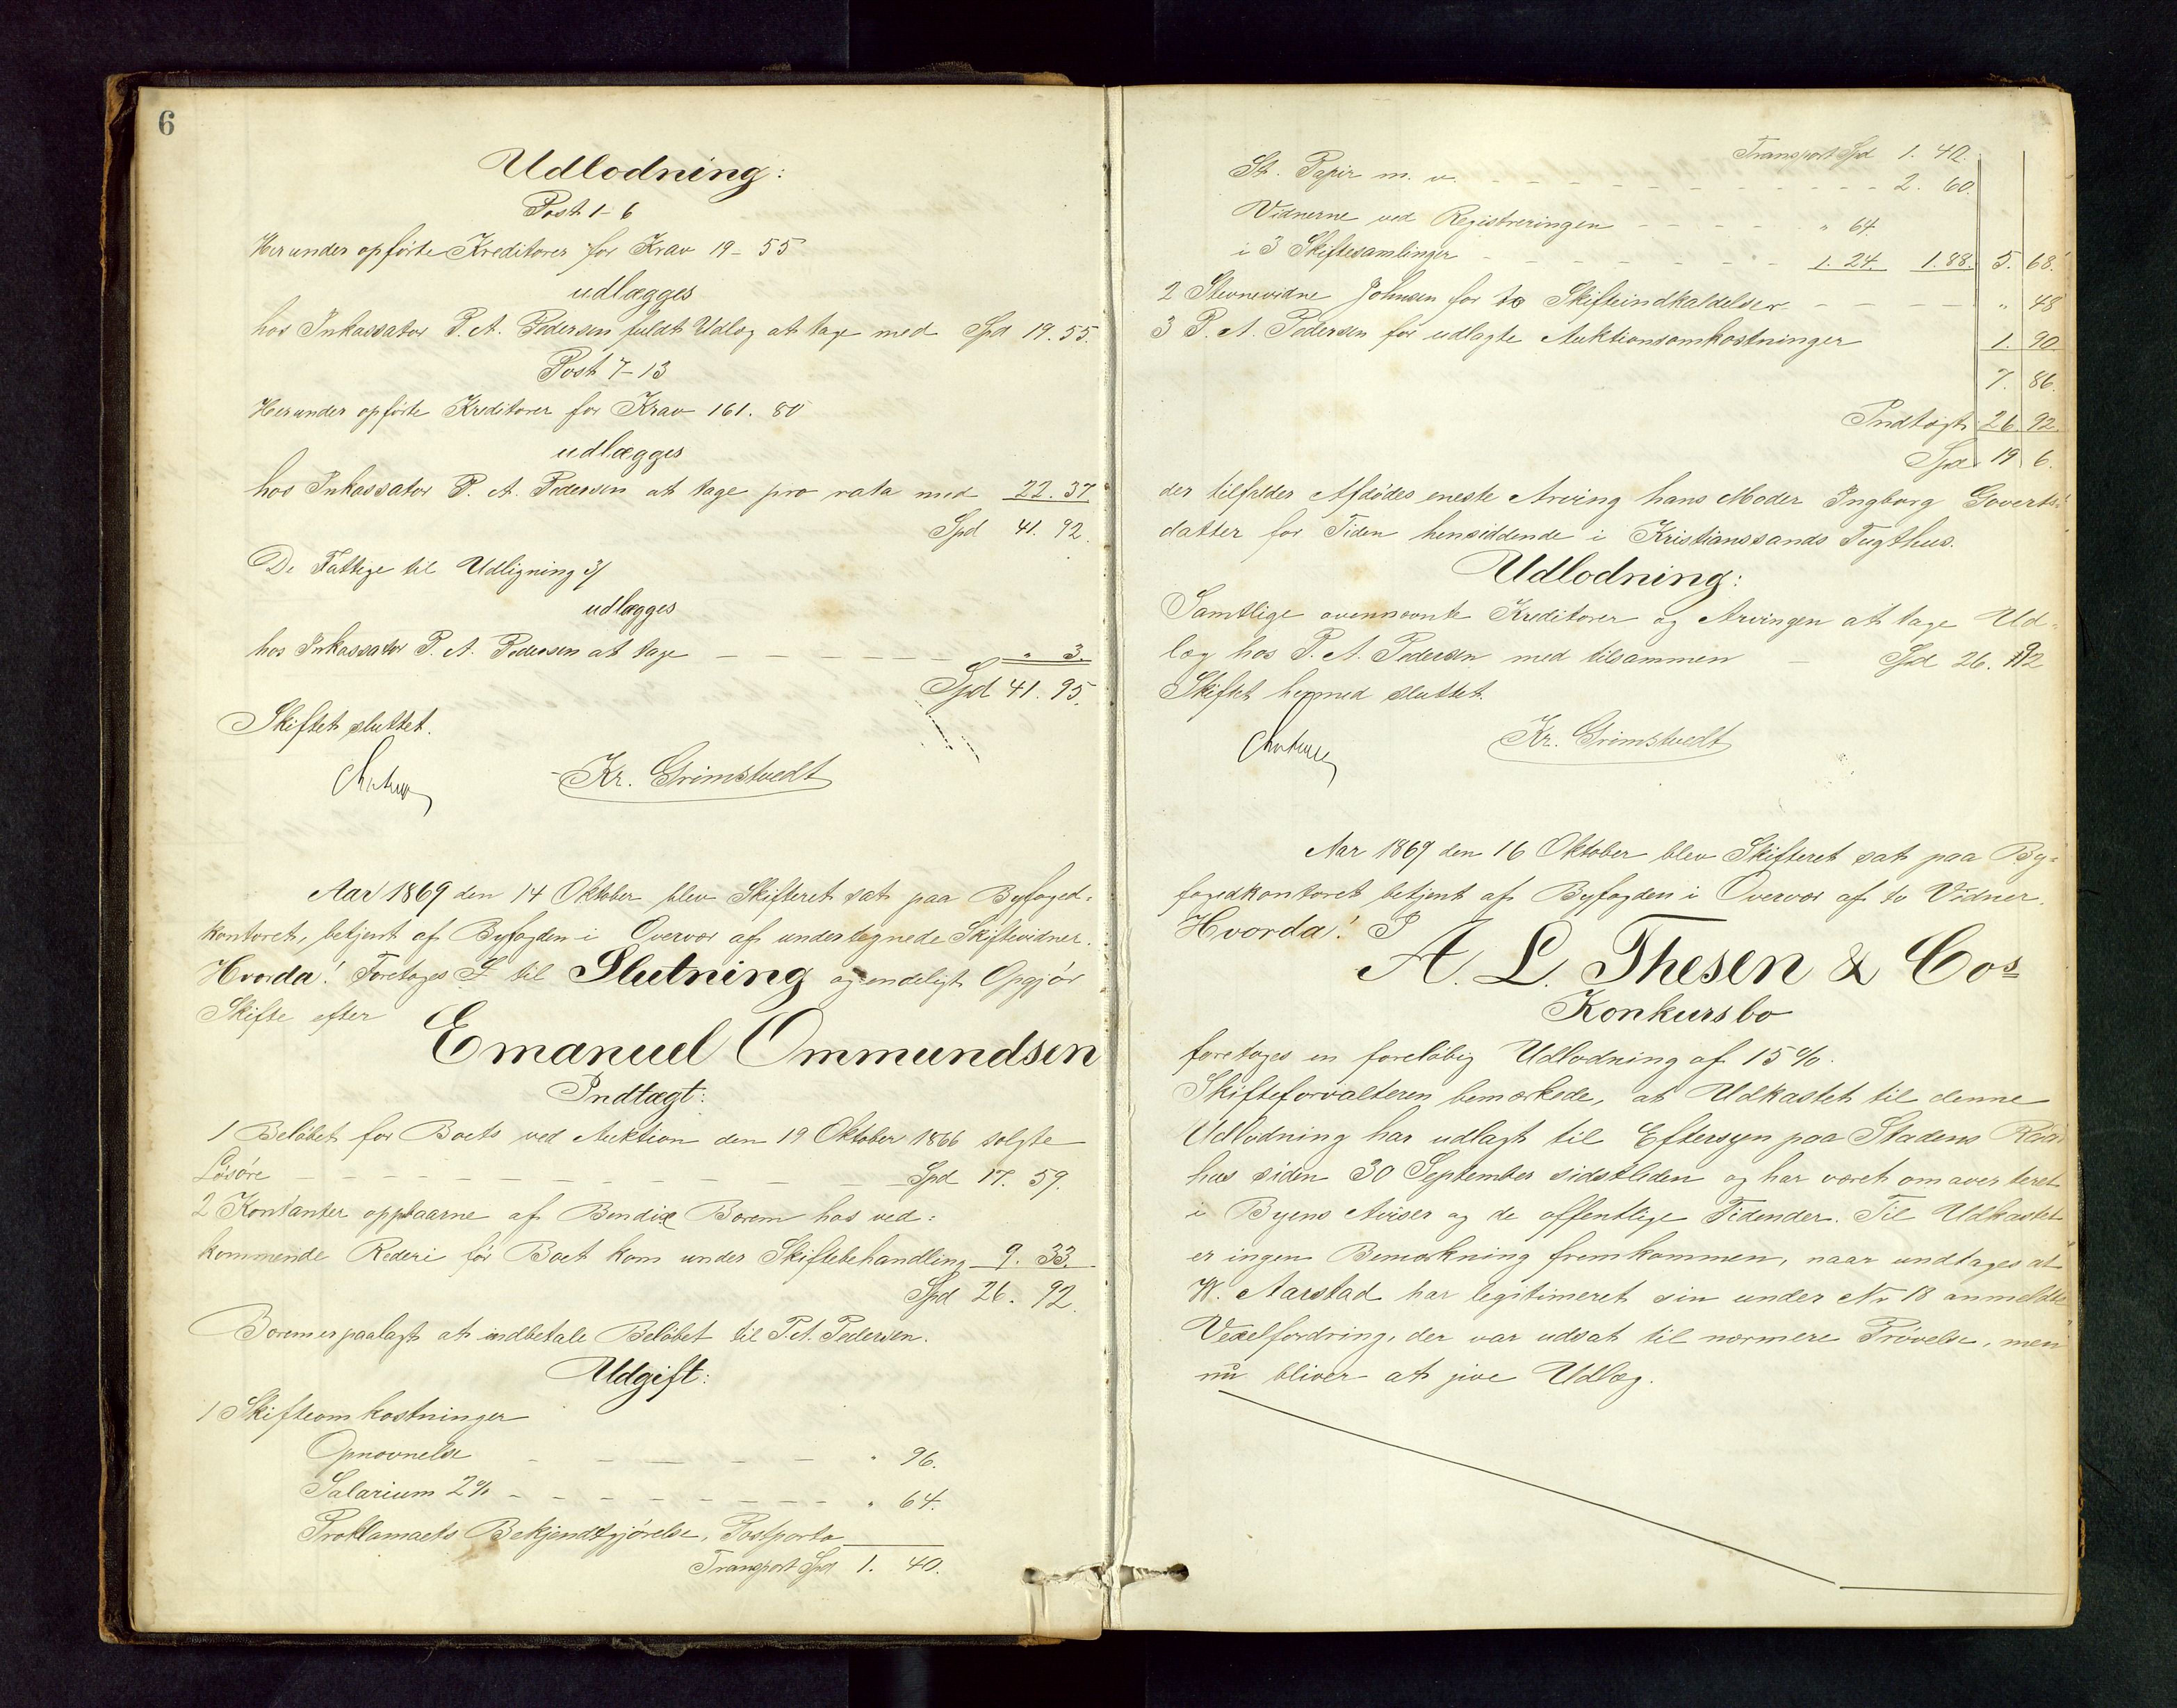 6
Udlodning:
Post 1-6
Herunder opførte Kreditorer for Krav 19-55
udlægges
hos Inkassator P. A. Pedersen fuldt Udlog at tage med Spd 19.55.
Post 7-13
Herunder opførte Kreditorer for Krav 161. 80
udlægges
hos Inkassator P. A. Pedersen at tage pro rata med 22.37
Spd 41. 92.
De Fattige til Udligning 3/
udlægges
hos Inkassator P. A. Pedersen at tage — — — — — " 3.
Spd 41. 95.
Skiftet sluttet.
Kr. Grimstvedt
Aar 1869 den 14 Oktober blev Skifteret sat paa Byfoged-
kontoret, betjent af Byfogden i Overvær af undertegnede Skiftevidner.
Hvorda! Foretoges S til Slutning og endeligt Opgjør
Skifte efter
Emanuel Ommundsen
Indtægt:
1 Beløbet for Boets ved Auktion den 19 Oktober 1866 solgte
Løsøre — — — — — — — — — Spd 17. 59.
2 Kontanter oppbaarne af Bendix Borem hos ved-
kommende Rederi før Boet kom under Skiftebehandling 9. 33.
Spd 26. 92.
Borem er paalagt at indbetale Beløbet til P.A. Pedersen.
Udgift:
1 Skifteomkostninger
Opnævnelse — — — — — " 96.
Salarium 2% — — — — — " 64.
Proklamaets Bekjendtgjørelse, Postporto
Transport Spd 1. 40.
Transport Spd 1. 40.
St. Papir m. v. — — — — — 2. 60.
Vidnerne ved Registreringen — — — — " 64.
i 3 Skiftesamlinger — — — — 1. 24. 1.88. 5. 68.
2 Stevnevidne Johnsen for to Skifteindkaldelser — — — " 48
3 P. A. Pedersen for udlagte Auktionsomkostninger 1. 90
7. 86.
Indtægt 26. 92.
Spd 19 6.
der tilfalder Afdødes eneste Arving hans Moder Ingborg Goverts-
datter for Tiden hensiddende i Kristianssands Tugthus.
Udlodning:
Samtlige ovennævnte Kreditorer og Arvingen at tage Ud-
læg hos P. A. Pedersen med tilsammen — Spd 26. 92
Skiftet hermed sluttet.
Kr. Grimstvedt
Aar 1869 den 16 Oktober blev Skifteret sat paa By-
fogedkontoret betjent af Byfogden i Overvær af to Vidner.
Hvorda! I
A. L. Thesen & Cos
Konkursbo
foretoges en foreløbig Udlodning af 15 %.
Skifteforvalteren bemærkede, at Udkastet til denne
Udlodning har udlagt til Eftersyn paa Stadens Raad
hus siden 30 September sidstleden og har været omaverteret
i Byens Aviser og de offentlige Tidender. Til Udkastet
er ingen Bemærkning fremkommen, naar undtages at
W. Aarstad har legitimeret sin under No 18 anmeldte
Vexelfordring, der var udsat til nærmere Prøvelse, men
nu bliver at give Udlæg.